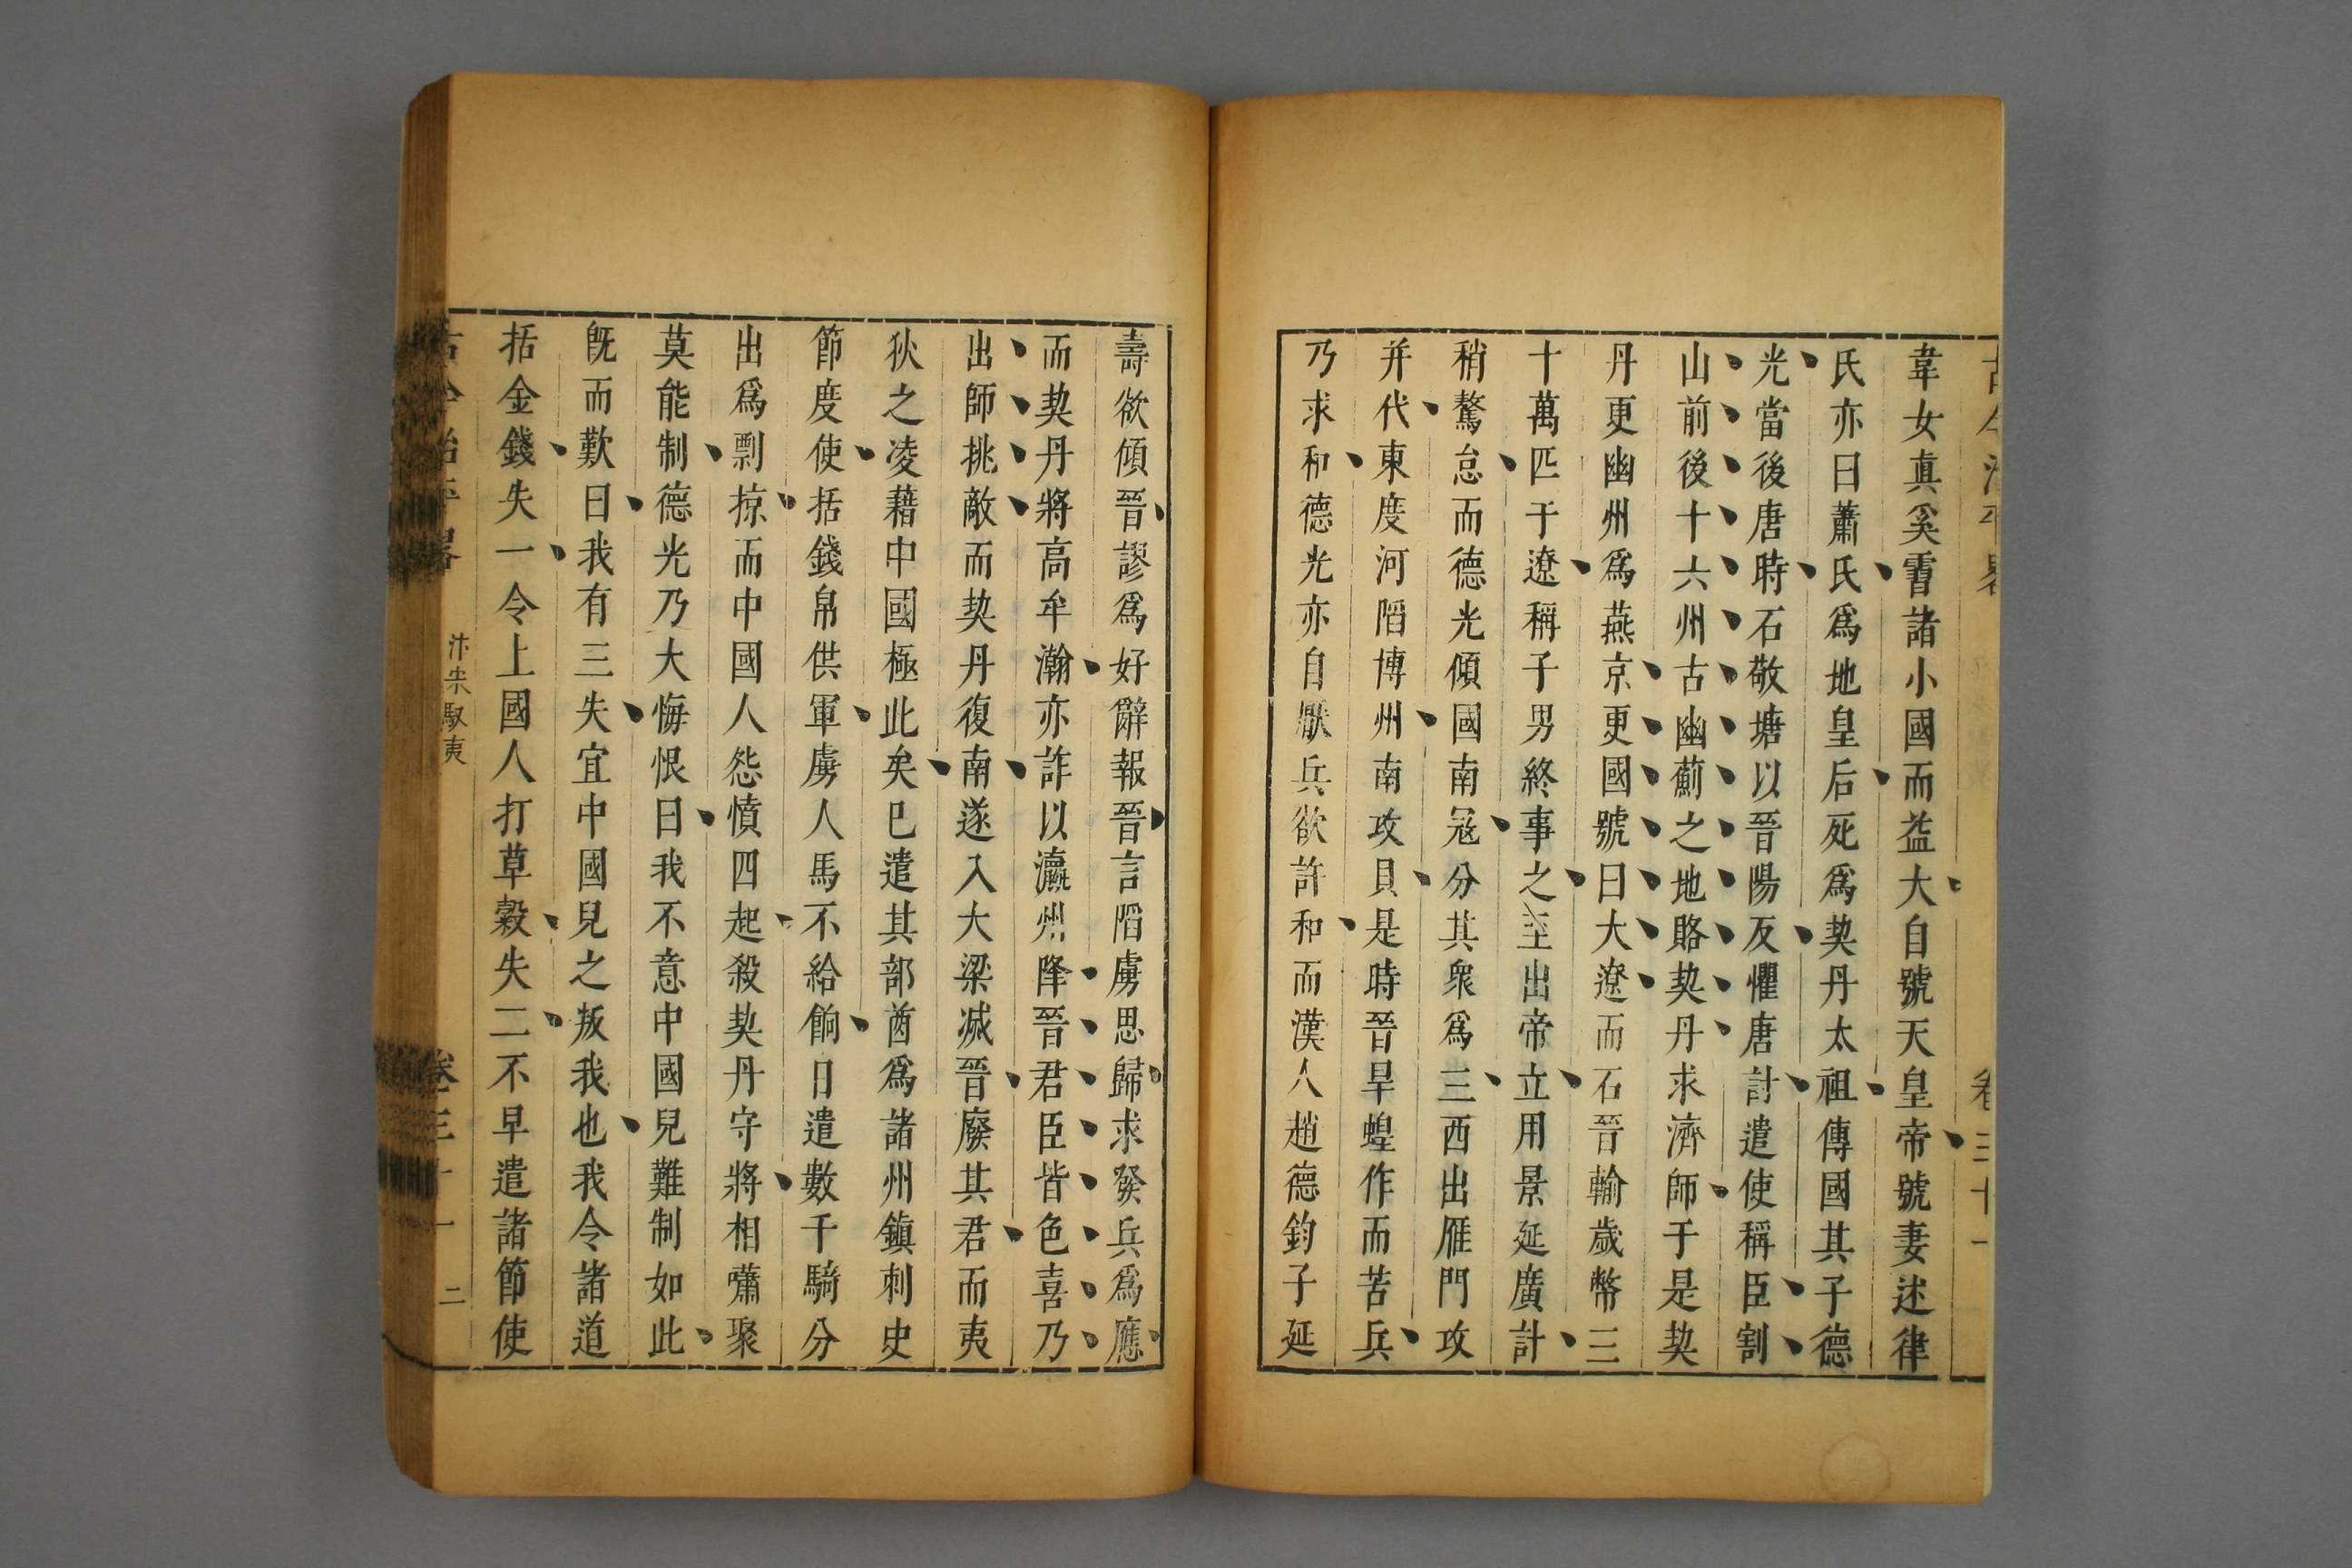 韋女真奚霫諸小國而益大自號天皇帝號妻述律
氏亦曰蕭氏爲地皇后死爲契丹太祖傳國其子德
光當後唐時石敬塘以晉陽反懼唐討遣使稱臣割
山前後十六州古幽薊之地賂契丹求濟師于是契
丹更幽州爲燕京更國號曰大遼而石晉輸歲幣三
十萬匹于遼稱子男終事之至出帝立用景延廣計
稍驁怠而德光傾國南冦分其衆爲三西出雁門攻
并代東度河䧟博州南攻貝是時晉旱蝗作而苦兵
乃求和德光亦自厭兵欲許和而漢人趙德鈞子延
壽欲傾晉謬爲好辭報晉言䧟虜思歸求發兵爲應
而契丹將高牟瀚亦詐以瀛州降晉君臣皆色喜乃
出師挑敵而契丹復南遂入大梁滅晉廢其君而夷
狄之凌藉中國極此矣已遣其部酋爲諸州鎮刺史
節度使括錢帛供軍虜人馬不給餉日遣數千騎分
出爲剽掠而中國人怨憤四起殺契丹守將相嘯聚
莫能制德光乃大悔恨曰我不意中國兒難制如此
旣而歎曰我有三失宜中國兒之叛我也我令諸道
括金錢失一令上國人打草穀失二不早遣諸節使
古今治平畧 汴宋馭夷 卷三十一 二